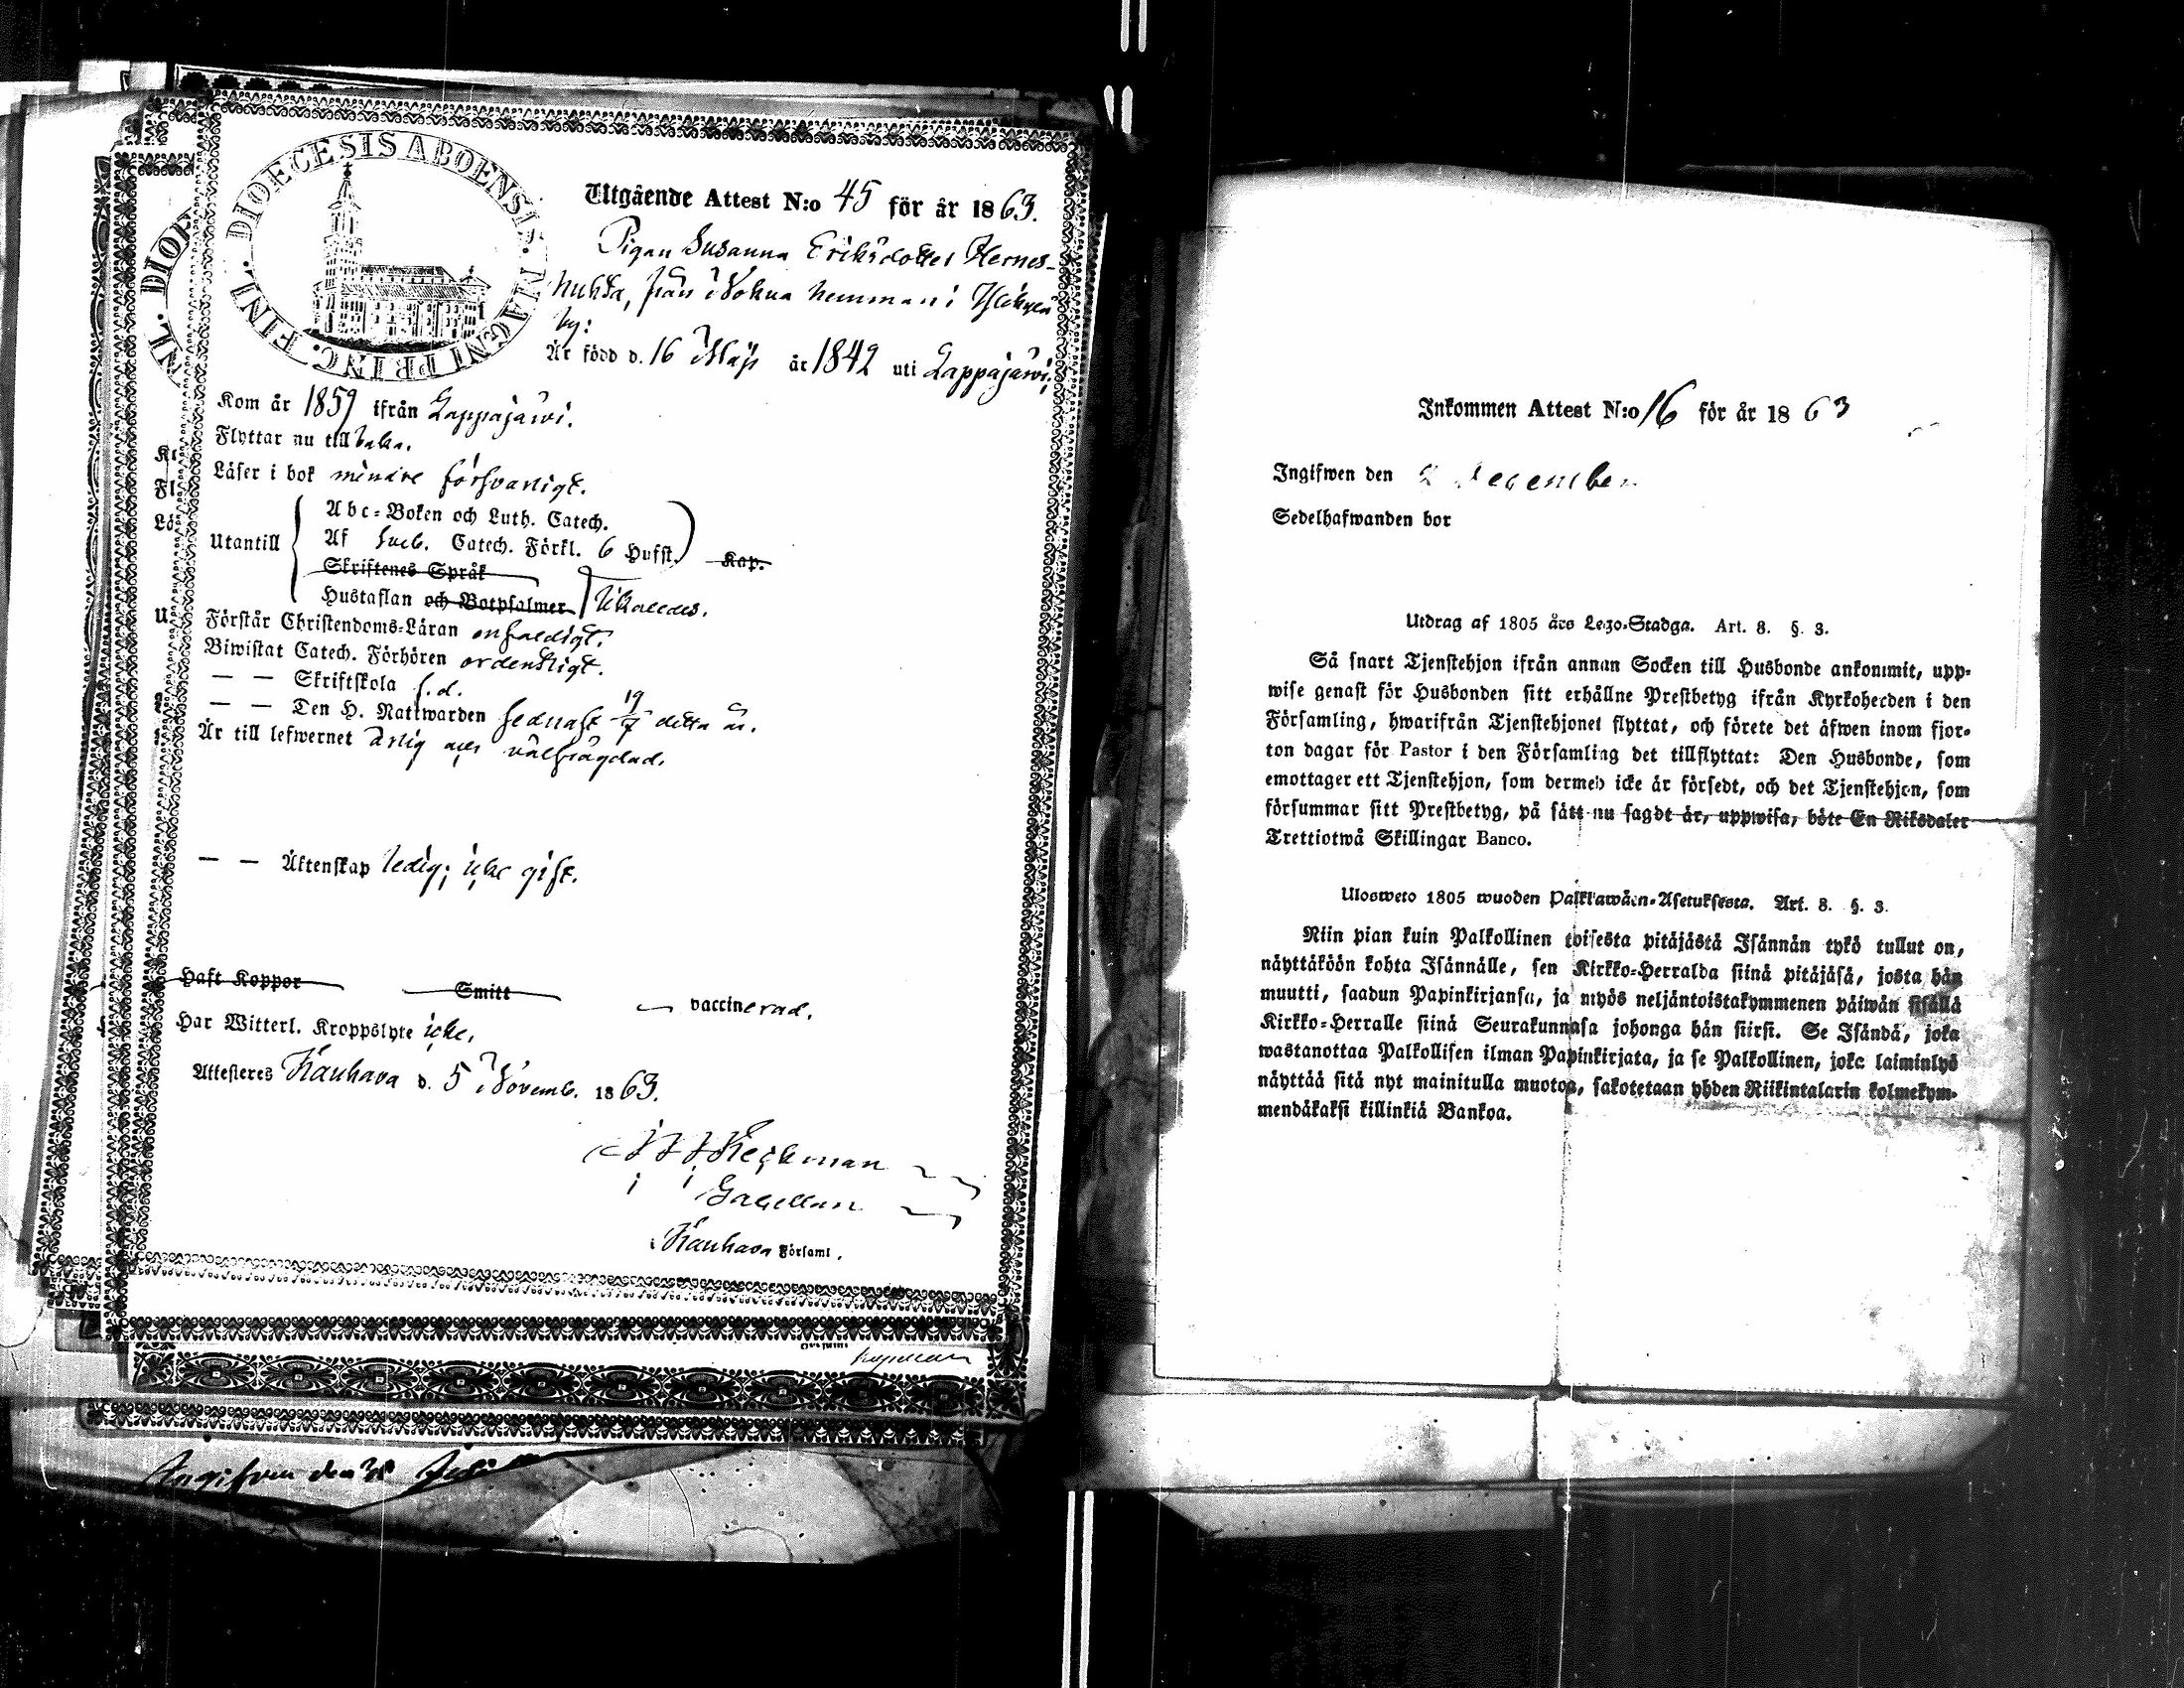 DIOECESIS ABOENSIS. MAGNI PRINC. FINL.
Utgående Attest N:o 45 för år 1863.
Pigan Susanna Eriksdotter Hernes-
huhta, från Nokua hemman i
by:
Är född d. 16 Maji år 1842 uti Lappajärvi;
Kom år 1859 ifrån Lappajärvi.
Flyttar nu till baka.
Läser i bok mindre försvarligt.
Utantill
Abc-Boken och Luth. Catech.
Af Sveb. Catech. Förkl. 6 Hufst. Kap.
Skriftenes Språk
Hustaflan och Botpsalmer likaledes.
Förstår Christendoms-Läran enfaldigt.
Biwistat Catech. Förhören ordentligt.
— — Skriftskola f.d.
— — Den H. Nattwarden sednast 19/7 detta år.
Är till lefwernet ärlig och välfrägdad.
— — Äktenskap ledig; icke gift.
Haft Koppor Smitt vaccinerad.
Har Witterl. Kroppslyte icke,
Attesteres Kauhava d. 5 Novemb. 1863.
Heikman
i Kauhava Församl.
Kapellan
Ingifven den 31 Juli
Inkommen Attest N:o 16 för år 1863
Ingifwen den 2 December
Sedelhafwanden bor
Utdrag af 1805 års Lego-Stadga. Art. 8. §. 3.
Så snart Tjenstehjon ifrån annan Socken till Husbonde ankommit, upp-
wise genast för Husbonden sitt erhållne Prestbetyg ifrån Kyrkoherden i den
Församling, hwarifrån Tjenstehjonet flyttat, och förete det äfwen inom fjor-
ton dagar för Pastor i den Församling det tillflyttat: Den Husbonde, som
emottager ett Tjenstehjon, som dermed icke är försedt, och det Tjenstehjon, som
försummar sitt Prestbetyg, på sätt nu sagdt är, uppwisa, böte En Riksdaler
Trettiotwå Skillingar Banco.
Ulosweto 1805 wuoden Palkkawäen-Asetuksesta. Art. 8. §. 3.
Niin pian kuin Palkollinen toisesta pitäjästä Isännän tykö tullut on,
näyttäköön kohta Isännälle, sen Kirkko-Herralda siinä pitäjäsä, josta hän
muutti, saadun Papinkirjansa, ja myös neljäntoistakymmenen päiwän sisällä
Kirkko-Herralle siinä Seurakunnasa johonga hän siirsi. Se Isändä, joka
wastanottaa Palkollisen ilman Papinkirjata, ja se Palkollinen, joka laiminlyö
näyttää sitä nyt mainitulla muotoa, sakotetaan yhden Riikintalarin kolmekym-
mendäkaksi killinkiä Bankoa.